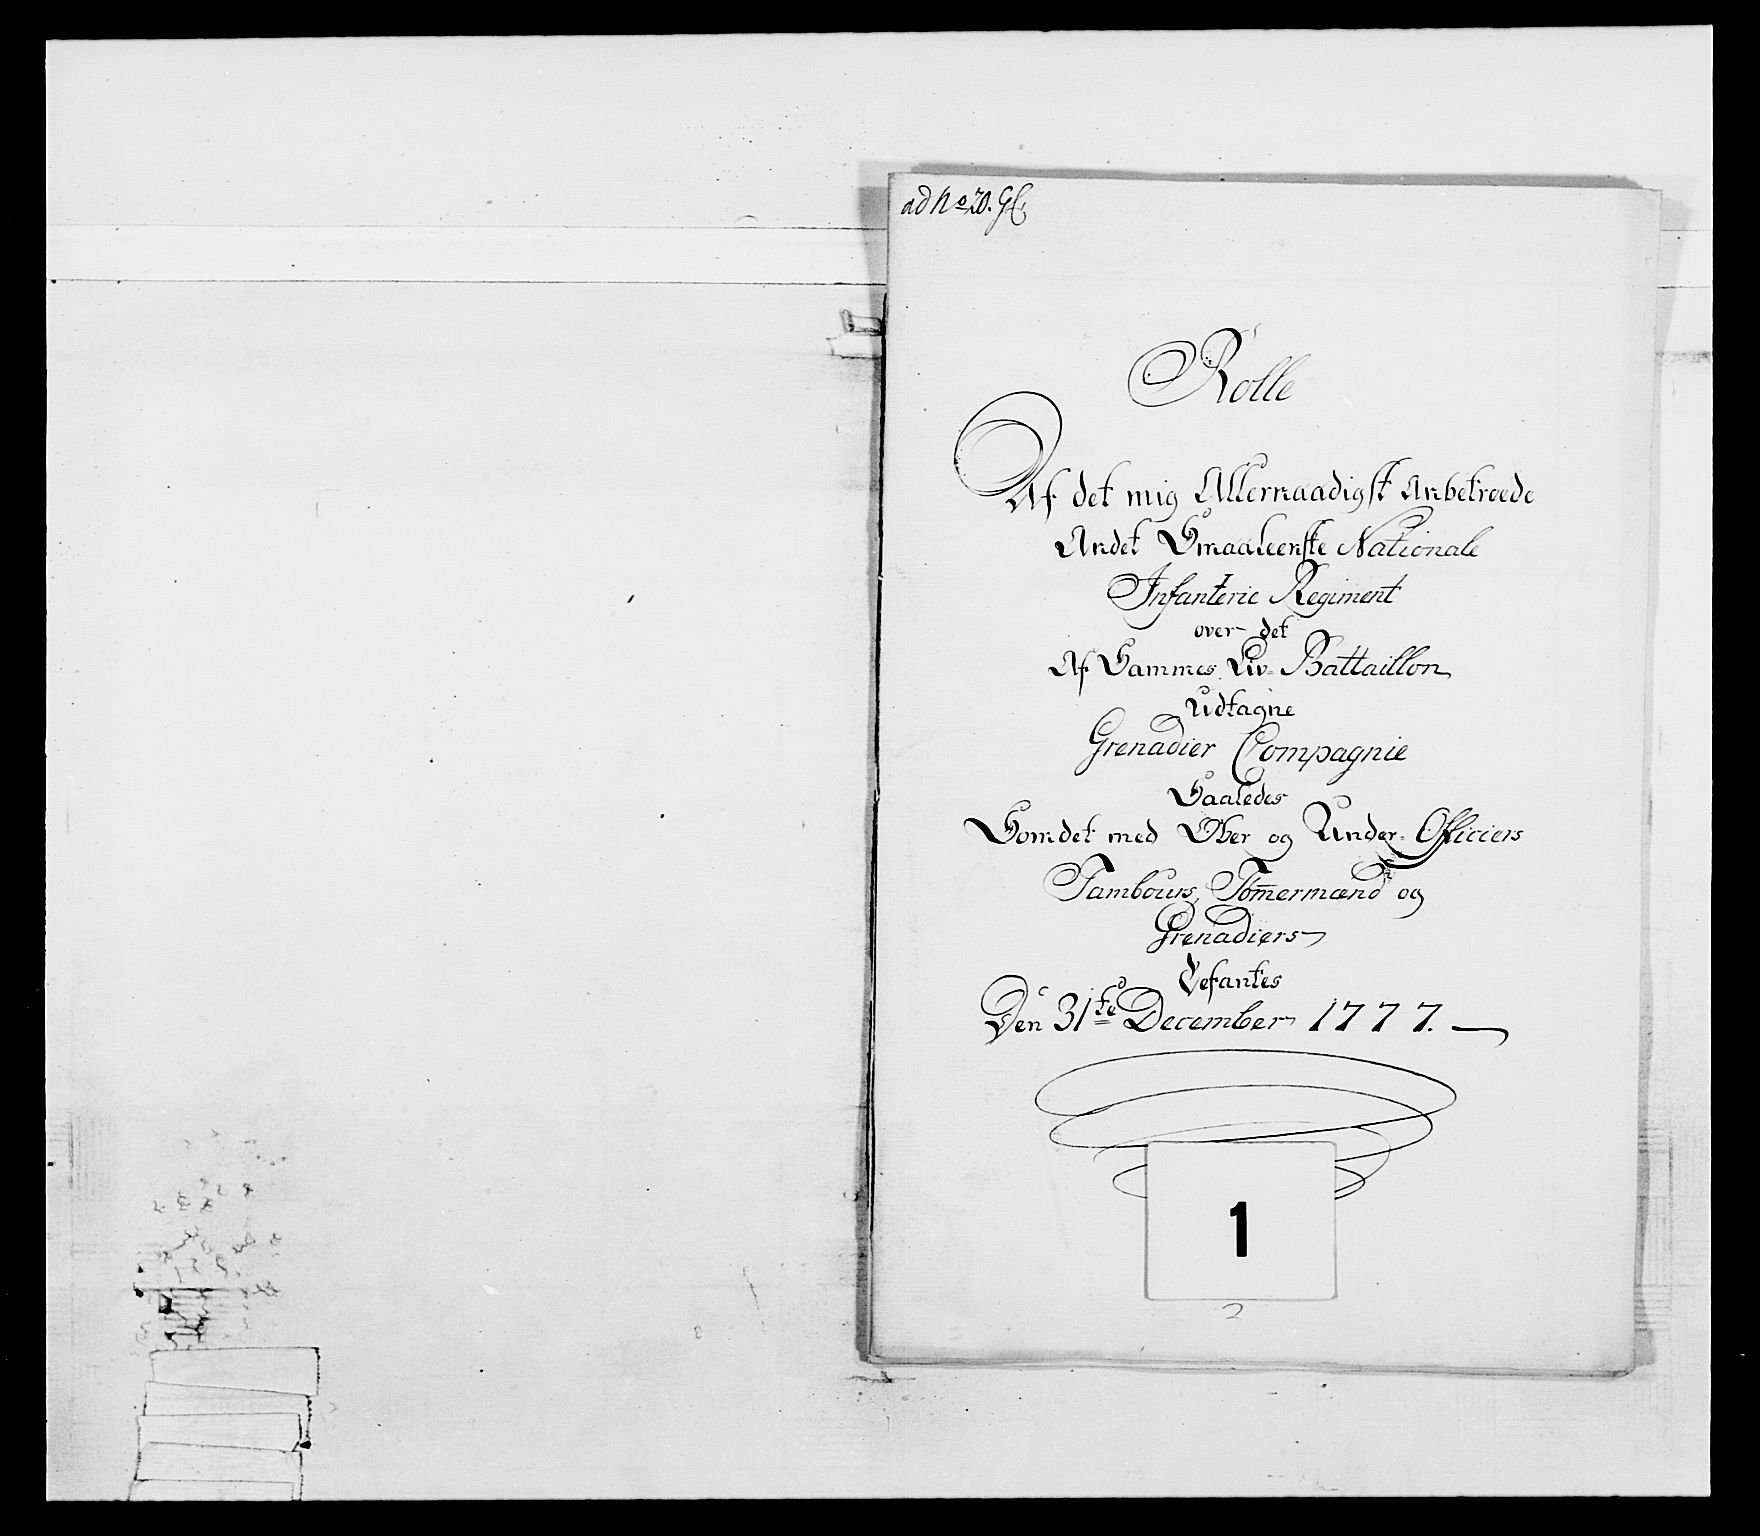 ad No 20. GC,
Rolle
Af det mig Allernaadigst Anbetroede
Andet Smaaleenske Nationale
Infanterie Regiment
over det
Af Sammes Liv-Battaillon
Udtagne
Grenadier Compagnie
Saaledes
Som det med Ober og Under-Officiers
Tambours, Tom̅ermænd og
Grenadiers
Befantes
Den 31te December 1777.
1
2